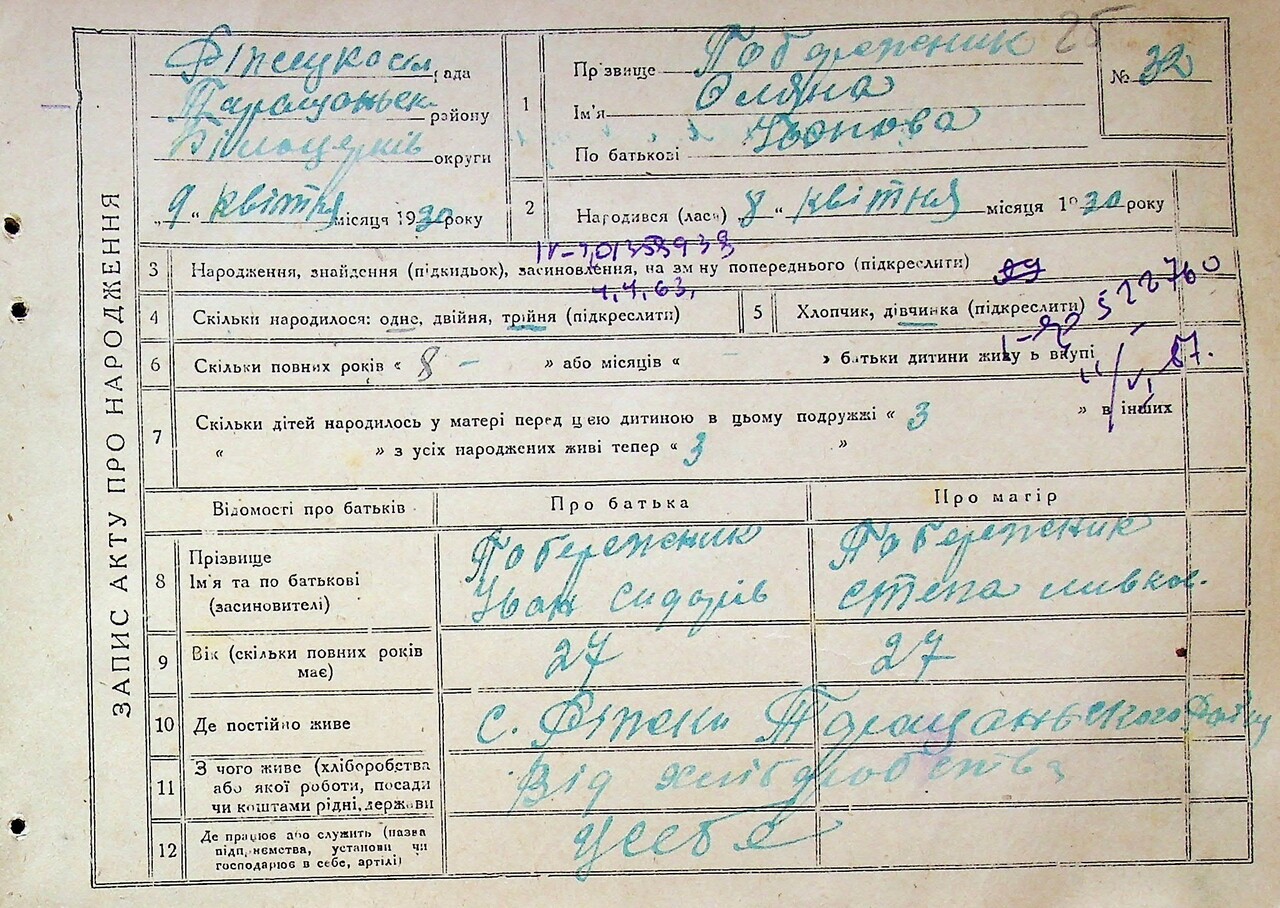 ЗАПИС АКТУ ПРО НАРОДЖЕННЯ
25
рада
району
Білоцерків округи
„9“ квітня місяця 1930 року
1
Прізвище Побережник
Ім'я Оляна
По батькові Іванова
№ 32
2
Народився (лась) „8“ квітня місяця 1930 року
IV-
3 Народження, знайдення (підкидьок), засиновлення, на зміну попереднього (підкреслити)
4.4.63.
4 Скільки народилося: одне, двійня, трійня (підкреслити)
5 Хлопчик, дівчинка (підкреслити)
522760
6 Скільки повних років « 8 – » або місяців « – » батьки дитини живуть вкупі
7 Скільки дітей народилось у матері перед цією дитиною в цьому подружжі « 3 » в інших
« » з усіх народжених живі тепер « 3 »
Відомості про батьків
Про батька
Про матір
8 Прізвище
Ім'я та по батькові
(засиновителі)
Побережник
Іван Сидорів
Побережник
9 Вік (скільки повних років
має)
27
27
10 Де постійно живе
с. Ріжки Таращанського району
11 З чого живе (хліборобства
або якої роботи, посади
чи коштами рідні, держави
Від хліборобства
12 Де працює або служить (назва
підприємства, установи чи
господарює в себе, артілі)
у себе